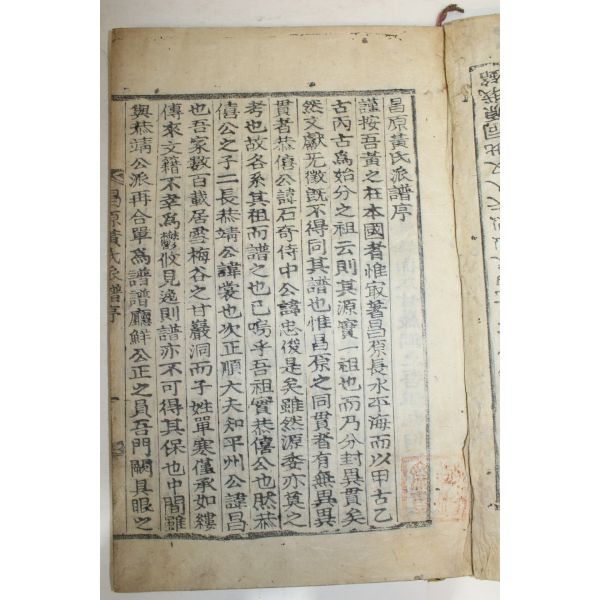 昌原黃氏派譜序
謹按吾黃之在本國者惟㝡著昌原長水平海而以甲古乙
古內古爲始分之祖云則其源實一祖也而乃分封異貫矣
然文獻无徵旣不得同其譜也惟昌原之同貫者有無異異
貫者恭僖公諱石奇侍中公諱忠俊是矣雖然源委亦莫之
考也故各系其祖而譜之也已嗚乎吾祖實恭僖公也然恭
僖公之子二長恭靖公諱裳也次正順大夫知平州公諱昌
也吾家數百載居雪梅谷之甘巖洞而子姓單寒僅承如縷
傳來文籍不幸爲鬱攸見逸則譜亦不可得其保也中間雖
與恭靖公派再合單爲譜譜廳鮮公正之員吾門闕具眼之
昌原黃氏派譜序